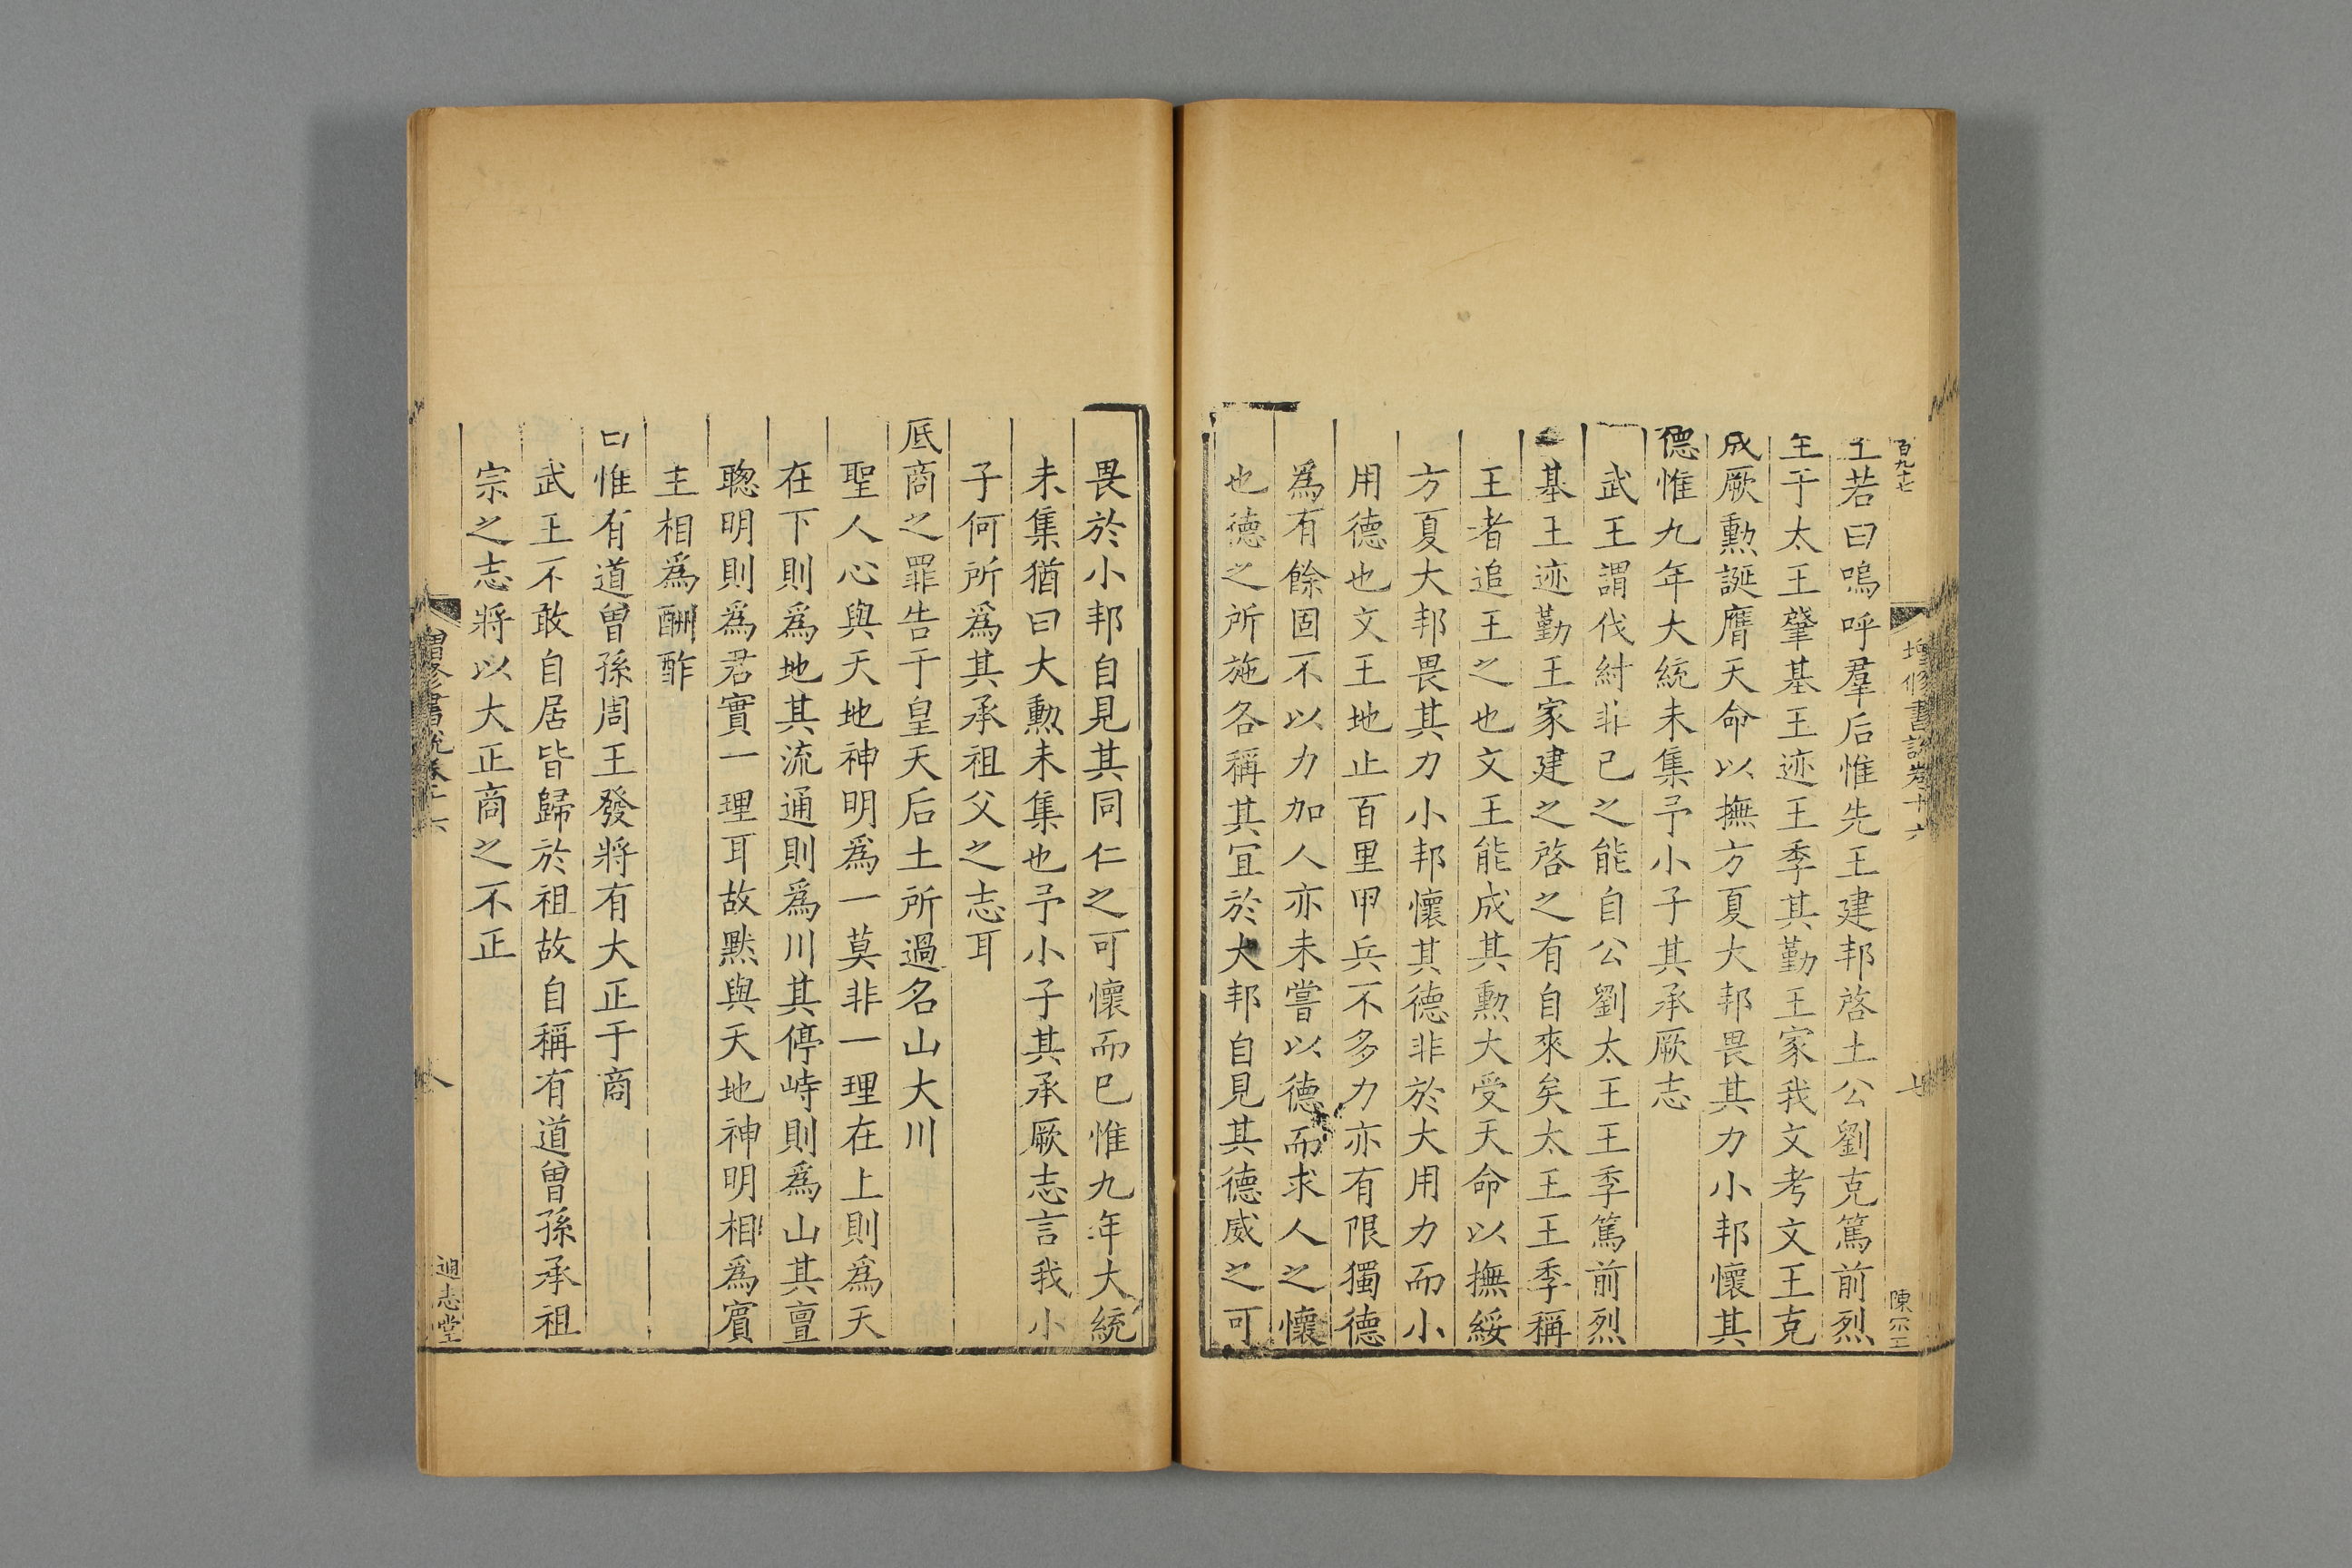 百九十七
增修書說卷十六
七
陳
王若曰嗚呼羣后惟先王建邦啓土公劉克篤前烈
至于太王肇基王迹王季其勤王家我文考文王克
成厥勲誕膺天命以撫方夏大邦畏其力小邦懷其
德惟九年大統未集予小子其承厥志
武王謂伐紂非己之能自公劉太王王季篤前烈
基王迹勤王家建之啓之有自來矣太王王季稱
王者追王之也文王能成其勲大受天命以撫綏
方夏大邦畏其力小邦懷其德非於大用力而小
用德也文王地止百里甲兵不多力亦有限獨德
爲有餘固不以力加人亦未嘗以德而求人之懷
也德之所施各稱其宜於大邦自見其德威之可
畏於小邦自見其同仁之可懷而已惟九年大統
未集猶曰大勲未集也予小子其承厥志言我小
子何所爲其承祖父之志耳
底商之罪告于皇天后土所過名山大川
聖人心與天地神明爲一莫非一理在上則爲天
在下則爲地其流通則爲川其停峙則爲山其亶
聰明則爲君實一理耳故黙與天地神明相爲賓
主相爲酬酢
曰惟有道曽孫周王發將有大正于商
武王不敢自居皆歸於祖故自稱有道曽孫承祖
宗之志將以大正商之不正
增修書說卷十六
八
通志堂